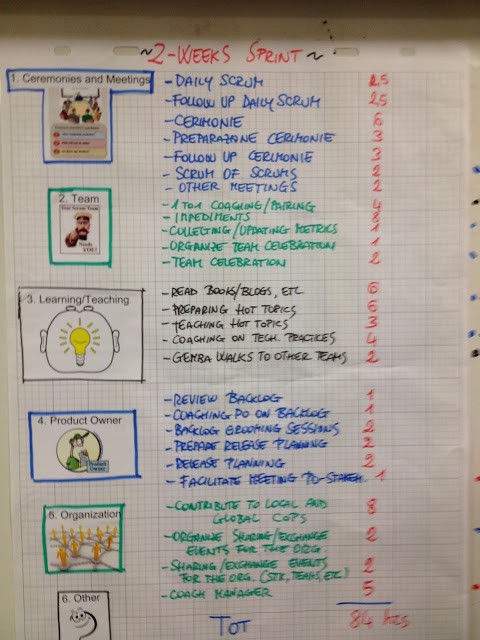 ~2-WEEKS SPRINT~
1. Ceremonies and Meetings
- DAILY SCRUM 2,5
- FOLLOW UP DAILY SCRUM 2,5
- CERIMONIE 6
- PREPARAZIONE CERIMONIE 3
- FOLLOW UP CERIMONIE 3
- SCRUM OF SCRUMS 2
- OTHER MEETINGS 2
2. Team
NEEDS YOU!
- 1 TO 1 COACHING/PAIRING 4
- IMPEDIMENTS 8
- COLLECTING/UPDATING METRICS 1
- ORGANIZE TEAM CELEBRATION 1
- TEAM CELEBRATION 2
3. Learning/Teaching
- READ BOOKS/BLOGS, ETC 6
- PREPARING HOT TOPICS 6
- TEACHING HOT TOPICS 3
- COACHING ON TECH. PRACTICES 4
- GEMBA WALKS TO OTHER TEAMS 2
4. Product Owner
Product Owner
- REVIEW BACKLOG 1
- COACHING PO ON BACKLOG 1
- BACKLOG GROOMING SESSIONS 2
- PREPARE RELEASE PLANNING 2
- RELEASE PLANNING 2
- FACILITATE MEETING PO-STAKEH. 1
5. Organization
- CONTRIBUTE TO LOCAL AND 8
GLOBAL COPS
- ORGANIZE SHARING/EXCHANGE 2
EVENTS FOR THE ORG.
- SHARING/EXCHANGE EVENTS 2
FOR THE ORG. (STK, TEAMS, ETC)
- COACH MANAGER 5
6. Other
TOT 84 HRS